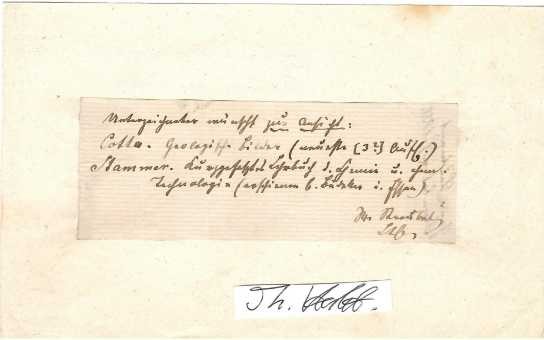 Unterzeichneter wünscht zur Ansicht:
Cotta. Geologische Bilder (neueste [3te] Aufl.)
Stammer. Kurzgefaßtes Lehrbuch d. Chemie u. chem.
Technologie (erschienen b. Bädeker i. Essen).
Th.